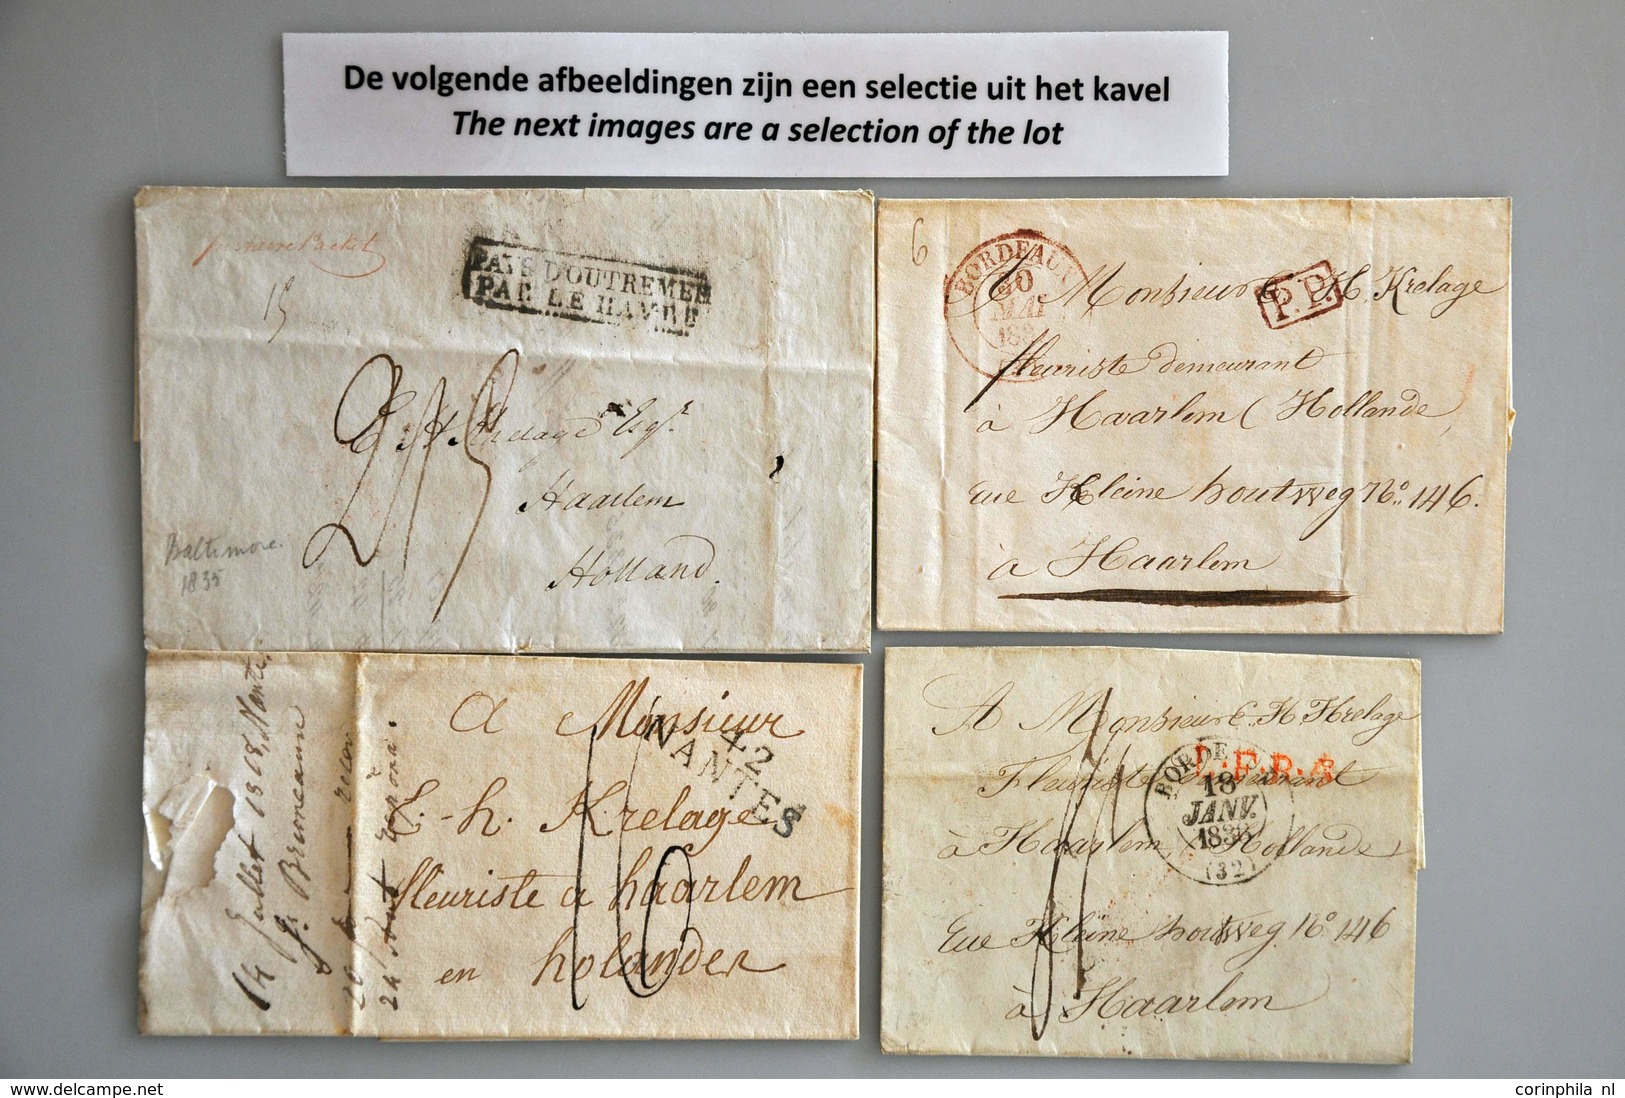 De volgende afbeeldingen zijn een selectie uit het kavel
The next images are a selection of the lot
PAYS D'OUTREMER
PAR LE HAVRE
15
E H Krelage Esqr.
Haarlem
Holland.
Baltimore.
1835
6
BORDEAUX
30
MAI
P.P.
A Monsieur E. H. Krelage
fleuriste demeurant
à Haarlem (Hollande
Rue Kleine houtweg No. 146.
à Haarlem
14 Juillet 1818, Nantes
24 Aout
42
NANTES
A Monsieur
E. h. Krelage
fleuriste a haarlem
en holanden
A Monsieur E. H. Krelage
L.F.R.4
BORDEAUX
18
JANV.
1838
(32)
Fleuriste demeurant
à Haarlem Hollande
Rue Kleine houtweg No 146
à Haarlem
corinphila nl
www.delcampe.net